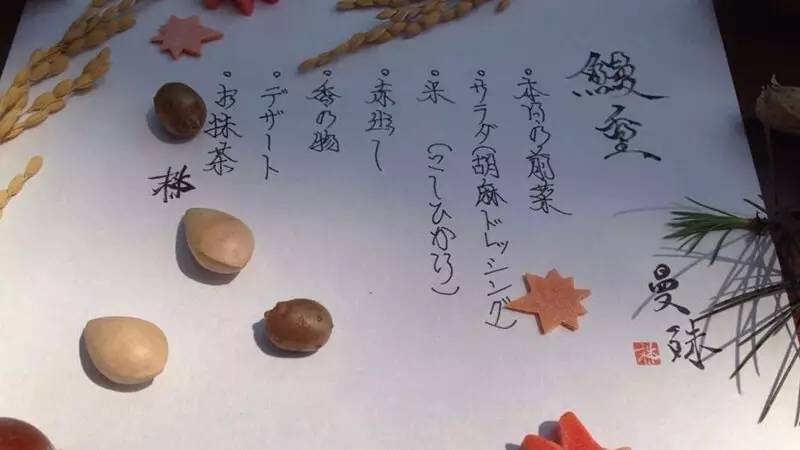 鰻重
・本日の前菜
・サラダ(胡麻ドレッシング)
・米 (こしひかり)
・赤出し
・香の物
・デザート
・お抹茶
株
曼殊